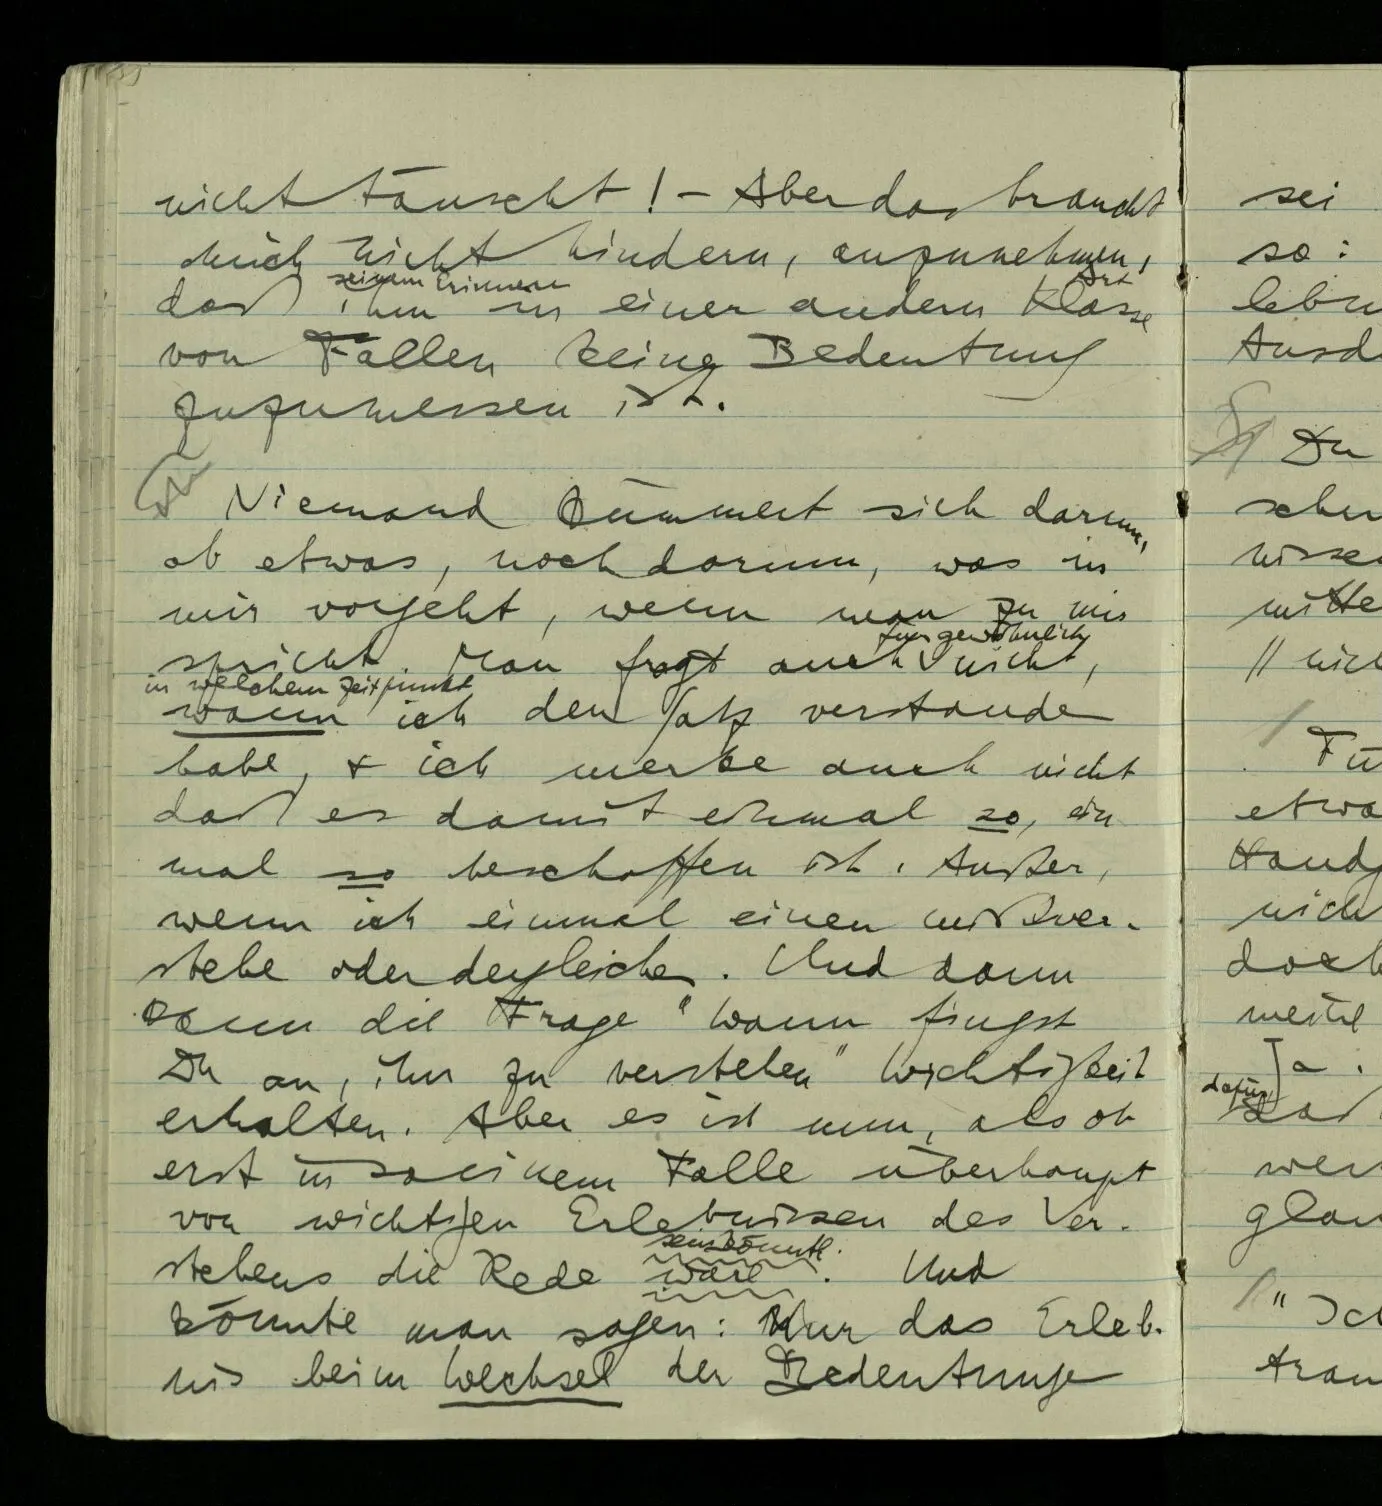 nicht täuscht! – Aber das braucht
mich nicht hindern, anzunehmen,
seinem Erinnern Art
daß ihm in einer andern Klasse
von Fällen keine Bedeutung
zuzumessen ist.
Niemand kümmert sich darum,
ob etwas, noch darum, was in
mir vorgeht, wenn man zu mir
für gewöhnlich
spricht. Man fragt auch nicht,
in welchem Zeitpunkt
wann ich den Satz verstande
habe, & ich merke auch nicht
daß es damit einmal so, ein
mal so beschaffen ist. Außer,
wenn ich einmal einen mißver-
stehe oder dergleichen. Und dann
kann die Frage "Wann fingst
Du an, ihn zu verstehen" Wichtigkeit
erhalten. Aber es ist nun, als ob
erst in so einem Falle überhaupt
von wichtigen Erlebnissen des Ver-
sein könnte.
stehens die Rede wäre. Und
könnte man sagen: Nur das Erleb-
nis beim Wechsel der Bedeutunge
sei
so:
lebn
Ausd
Du
schen
wissen
mitte
// nich
Fü
etwa
Hand
nich
doch
meine
Ja.
dafür
daß
wer
glau
" Ich
tran